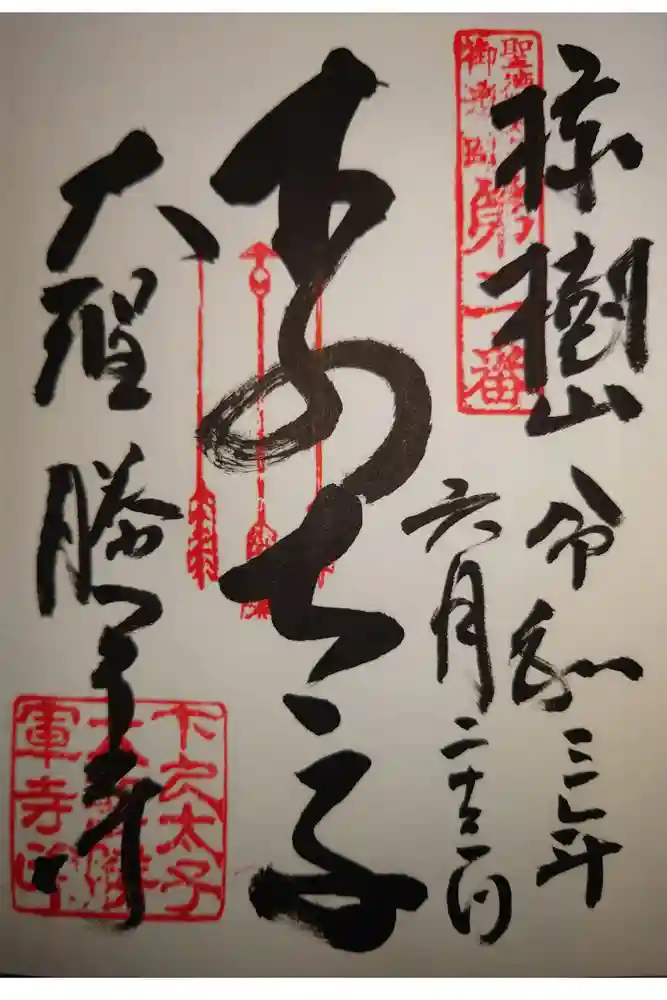 聖徳
第二番
椋樹山
令和三年
六月二十
下の太子
大聖勝軍寺
下之太子
大聖勝
軍寺印